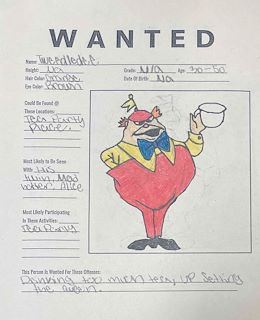 WANTED
Name: Tweedledee
Height: Na Grade: N/A Age: 30-50
Hair Color: Orange Date Of Birth: Na
Eye Color: Brown
Could Be Found @
These Locations:
Tea Party
Place.
Most Likely to Be Seen
With: His
twin, Mad
hatter, Alice
Most Likely Participating
In These Activities:
Tea Party
This Person Is Wanted For These Offenses:
Drinking too much tea, up setting
the queen.